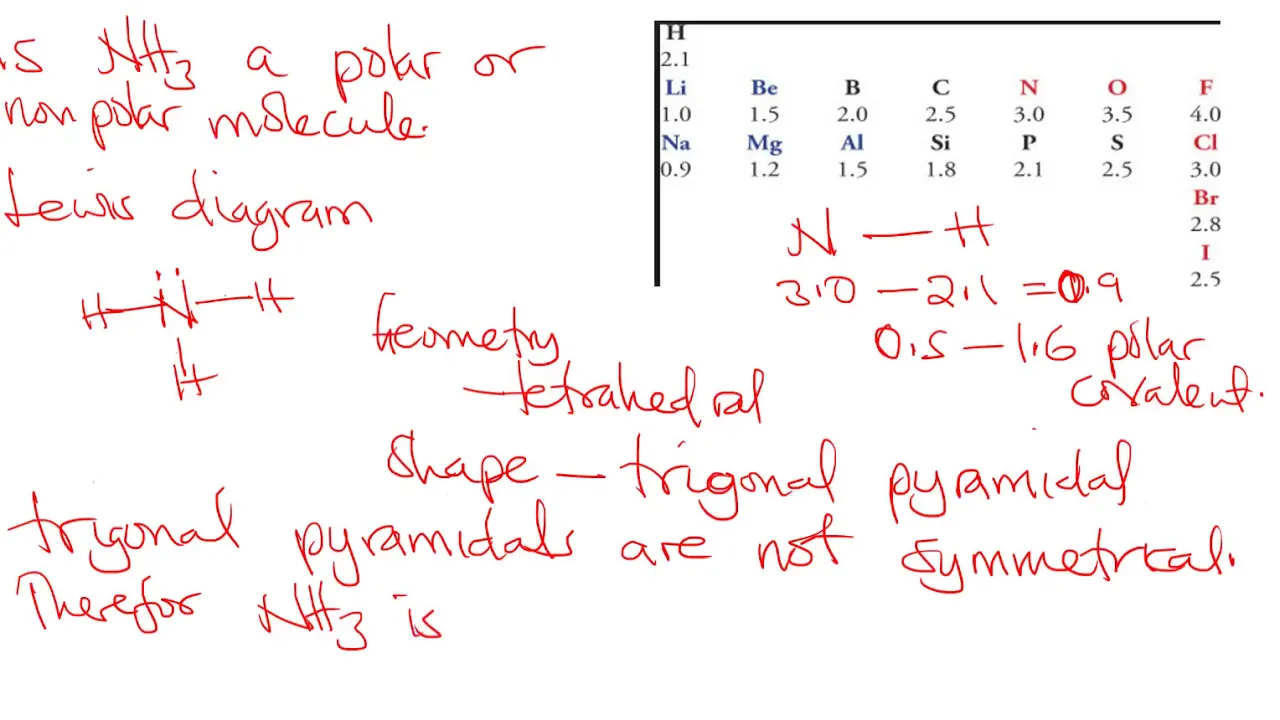 is NH3 a polar or
non polar molecule.
Lewis diagram
H
2.1
Li Be B C N O F
1.0 1.5 2.0 2.5 3.0 3.5 4.0
Na Mg Al Si P S Cl
0.9 1.2 1.5 1.8 2.1 2.5 3.0
Br
2.8
I
2.5
N — H
3.0 — 2.1 = 0.9
0.5 — 1.6 polar
covalent.
H—N̈—H
H
Geometry
— tetrahedral
Shape — trigonal pyramidal
trigonal pyramidals are not symmetrical.
Therefor NH3 is